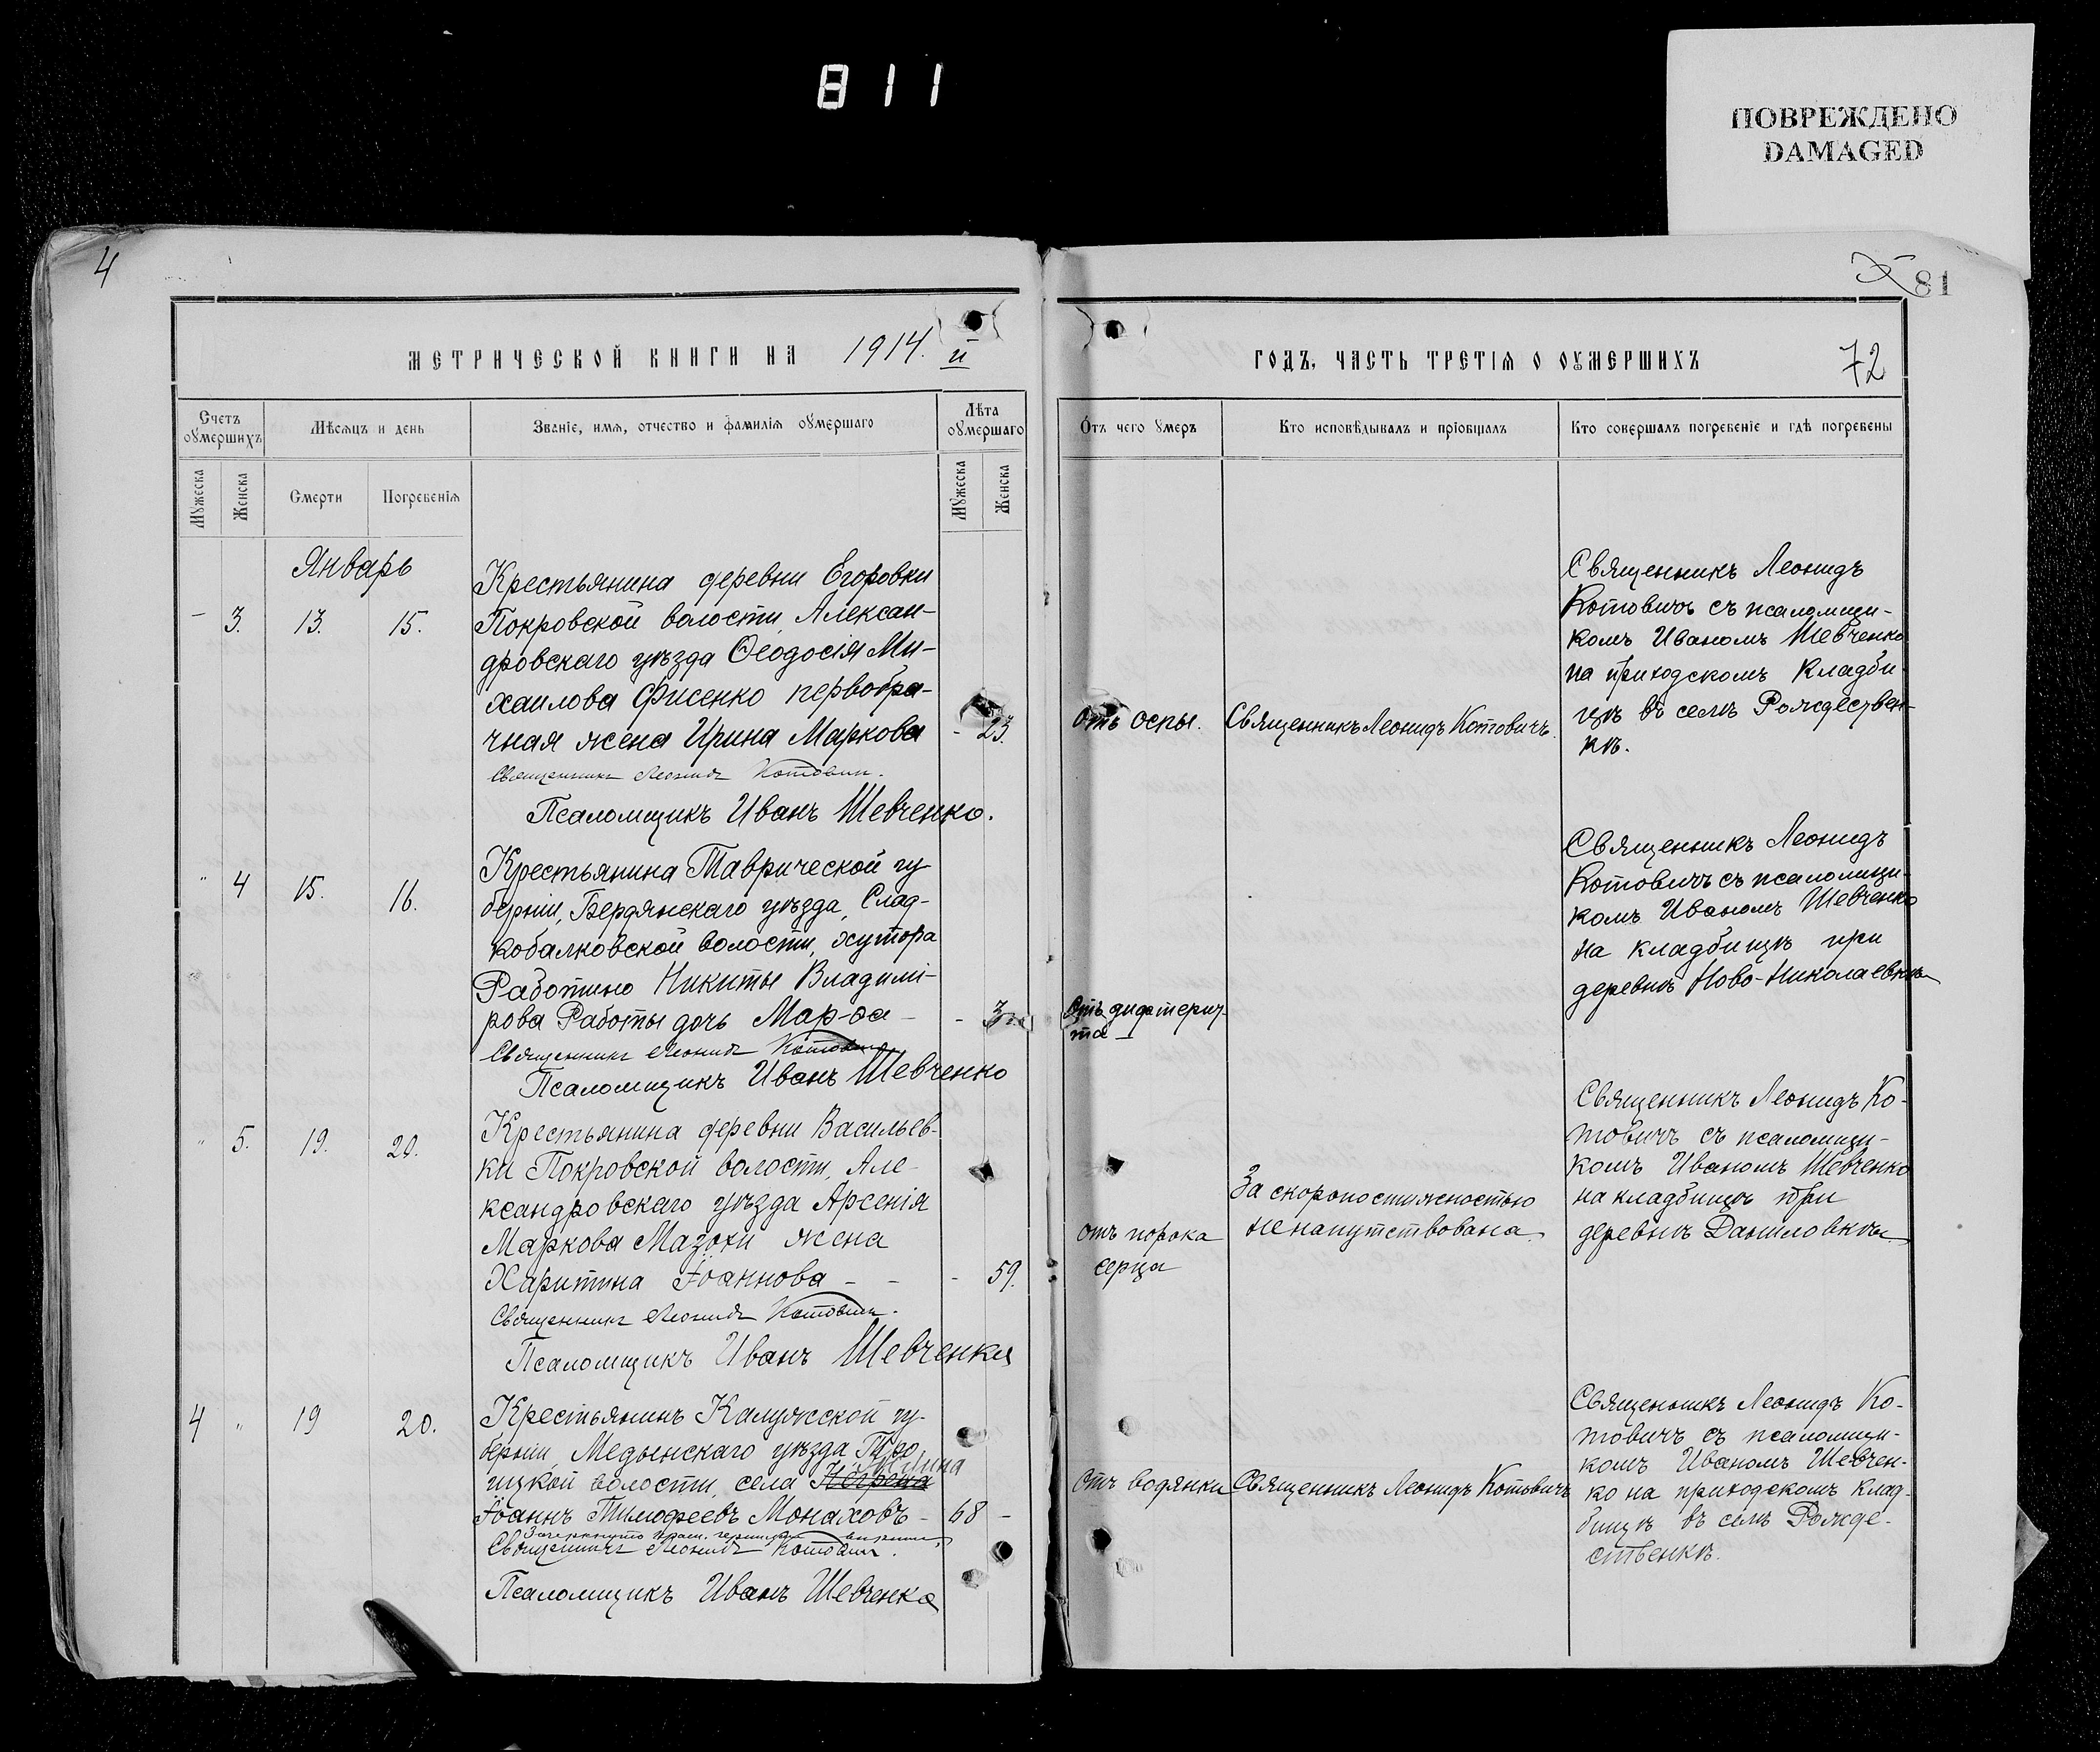 811
ПОВРЕЖДЕНО
DAMAGED
4
81
МЕТРИЧЕСКОЙ КНИГИ НА 1914 й
ГОДЪ, ЧАСТЬ ТРЕТІЯ О ОУМЕРШИХЪ
72
Счетъ оумершихъ
Мѣсяцъ и день
Званіе, имя, отчество и фамилія оумершаго
Лѣта оумершаго
Отъ чего умеръ
Кто исповѣдывалъ и пріобщалъ
Кто совершалъ погребеніе и гдѣ погребены
Мужеска
Женска
Смерти
Погребенія
Мужеска
Женска
Январь
- 3. 13. 15.
Крестьянина деревни Егоровки
Покровской волости, Алексан-
дровскаго уѣзда Ѳеодосія Ми-
хаилова Фисенко первобра-
чная жена Ирина Маркова
- 23.
Священникъ Леонидъ Котовичъ.
Псаломщикъ Иванъ Шевченко.
Отъ оспы.
Священникъ Леонидъ Котовичъ.
Священникъ Леонидъ
Котовичъ съ псаломщи-
комъ Иваномъ Шевченко
на приходскомъ кладби-
щѣ въ селѣ Рождествен-
кѣ.
" 4 15. 16.
Крестьянина Таврической гу
берніи, Бердянскаго уѣзда, Слад-
кобалковской волости, хутора
Работино Никиты Владимі-
рова Работы дочь Марѳа -
- 3
Священникъ Леонидъ Котовичъ
Псаломщикъ Иванъ Шевченко
Отъ дифтери-
та -
Священникъ Леонидъ
Котовичъ съ псаломщи-
комъ Иваномъ Шевченко
на кладбищѣ при
деревнѣ Ново-Николаевкѣ
" 5. 19. 20.
Крестьянина деревни Васильев-
ки Покровской волости, Але-
ксандровскаго уѣзда Арсенія
Маркова Мазохи жена
Харитина Іоаннова - -
- 59.
Священникъ Леонидъ Котовичъ.
Псаломщикъ Иванъ Шевченко
отъ порока
серца
За скоропостижностью
ненапутствована.
Священникъ Леонидъ Ко-
товичъ съ псаломщи-
комъ Иваномъ Шевченко
на кладбищѣ при
деревнѣ Даниловкѣ
4 " 19 20.
Крестьянинъ Калужской гу-
берніи, Медынскаго уѣзда
волости, села
Іоаннъ Тимофеевъ Монаховъ -
68 -
Зачеркнуто
Священникъ Леонидъ Котовичъ.
Псаломщикъ Иванъ Шевченко
Отъ водянки
Священникъ Леонидъ Котовичъ
Священникъ Леонидъ Ко-
товичъ съ псаломщи-
комъ Иваномъ Шевчен-
ко на приходскомъ клад-
бищѣ въ селѣ Рожде-
ственкѣ.